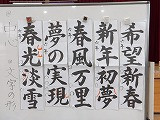 希望新春
新年初夢
春風万里
夢の実現
春光淡雪
中心
文字の形